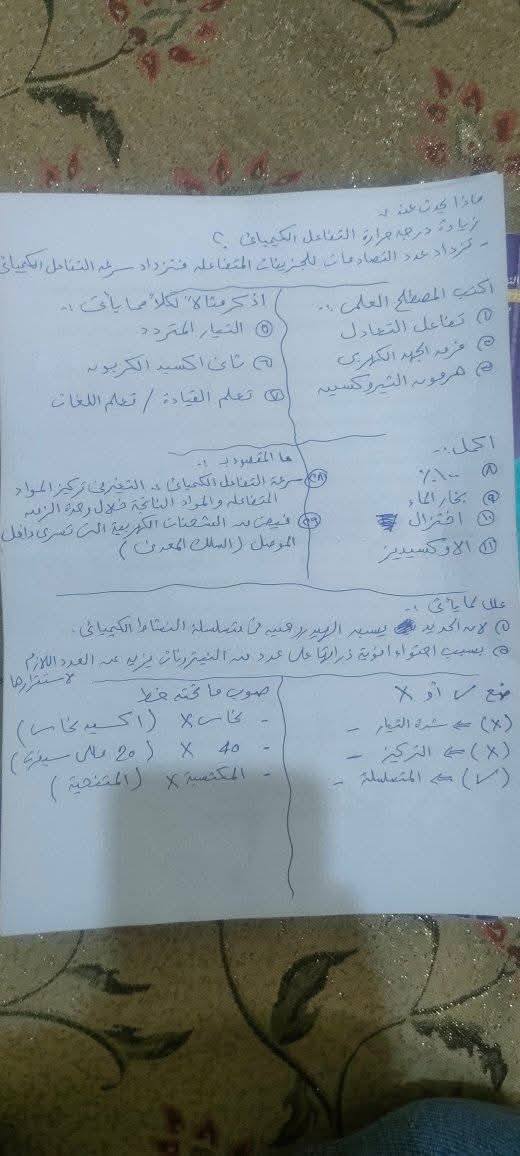 ماذا يحدث عند :-
زيادة درجه حرارة التفاعل الكيميائى ؟
- تزداد عدد التصادمات للجزيئات المتفاعله فتزداد سرعه التفاعل الكيميائى
اكتب المصطلح العلمى :-
① تفاعل التعادل
② فرق الجهد الكهربى
③ هرمون الثيروكسين
اذكر مثالا لكلا مما يأتى :-
⑤ التيار المتردد
⑥ ثانى اكسيد الكربون
⑦ تعلم القيادة / تعلم اللغات
اكمل :-
⑧ ١٠٠٪
⑨ بخار الماء
⑩ اختزال
⑪ الاوكسيديز
ما المقصود بـ :-
سرعة التفاعل الكيميائى :- التغير فى تركيز المواد
المتفاعله والمواد الناتجة خلال وحدة الزمن
فيض من الشحنات الكهربية التى تسرى داخل
الموصل (السلك المعدنى)
علل لما يأتى :-
① لان الحديد يسبق الهيدروجين فى متسلسلة النشاط الكيميائى .
② بسبب احتواء انوية ذراتها على عدد من النيترونات يزيد عن العدد اللازم
لاستقرارها
ضع √ أو X
(X) ⇐ شده التيار -
(X) ⇐ التركيز -
(√) ⇐ المتسلسلة -
صوب ما تحته خط
- نحاس X (اكسيد نحاس)
- 40 X (20 مللى سيفرت)
- المكتسبة X (المتنحية)